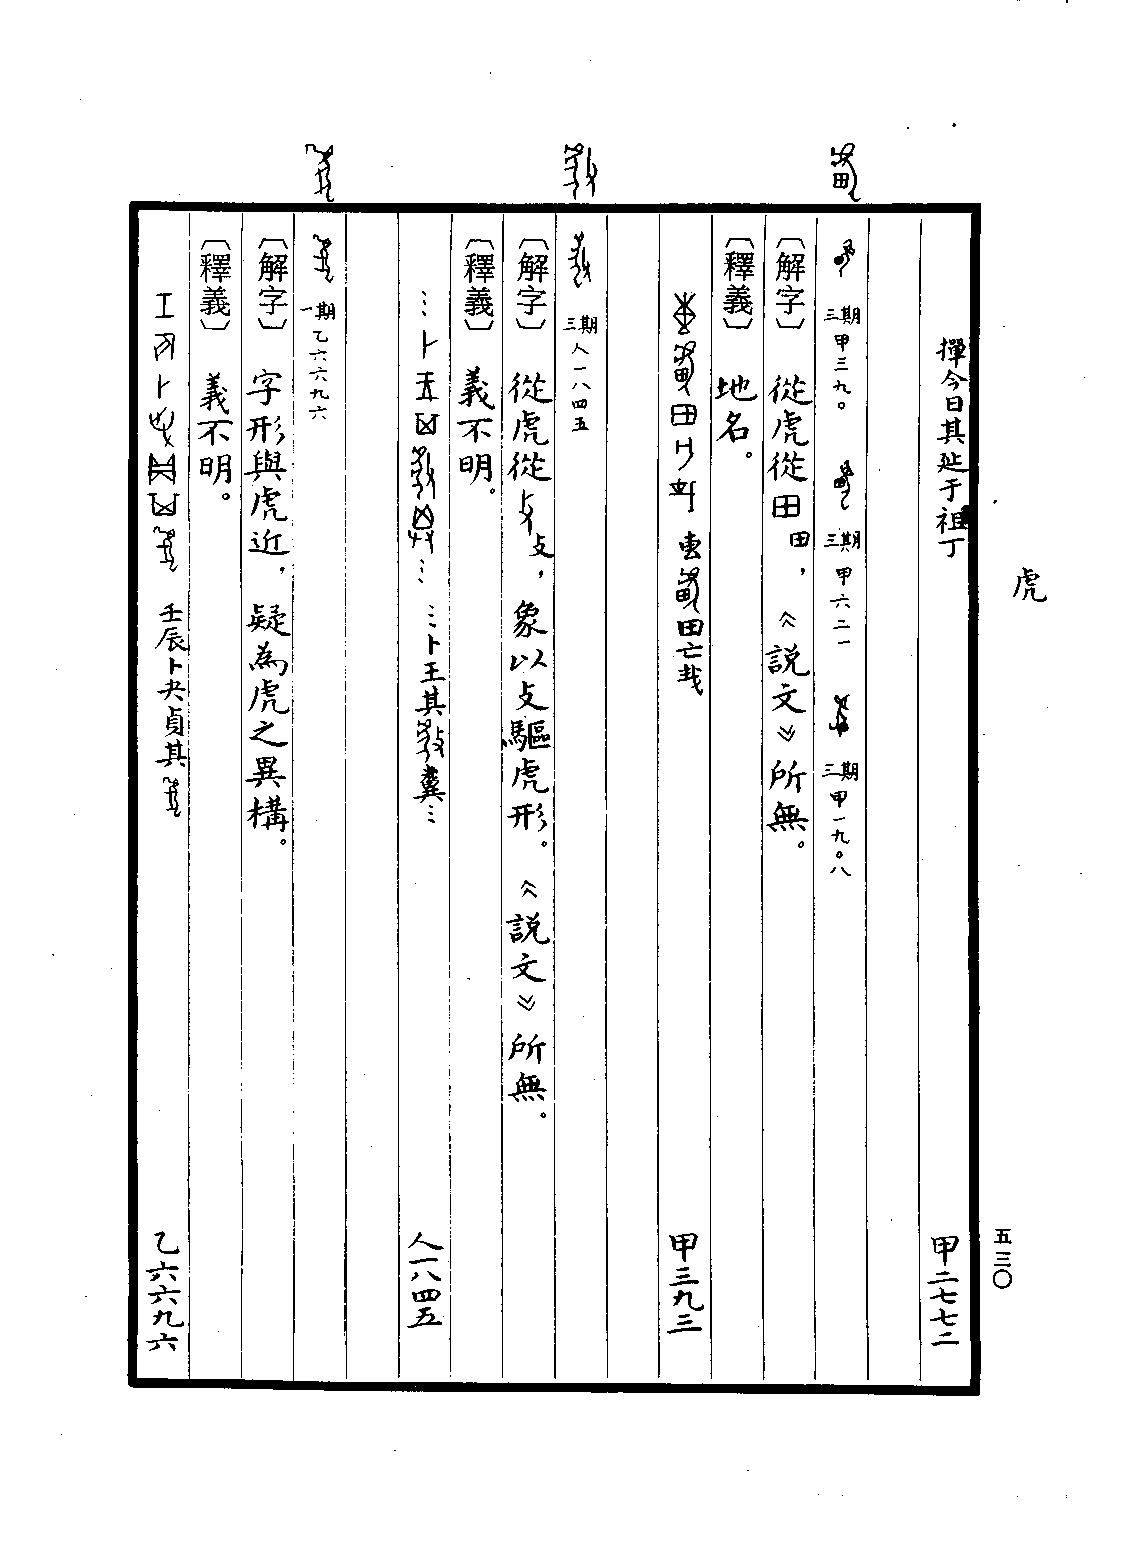 虎
五三〇
擇今日其延于祖丁 甲二七七二
三期 甲三九〇 三期 甲六二一 三期 甲一九〇八
〔解字〕 從虎從田，《説文》所無。
〔釋義〕 地名。
叀田亡𢦔 甲三九三
三期 人一八四五
〔解字〕 從虎從攴，象以攴驅虎形。《説文》所無。
〔釋義〕 義不明。
…卜王其…
人一八四五
一期 乙六六九六
〔解字〕 字形與虎近，疑為虎之異構。
〔釋義〕 義不明。
壬辰卜夬貞其 乙六六九六